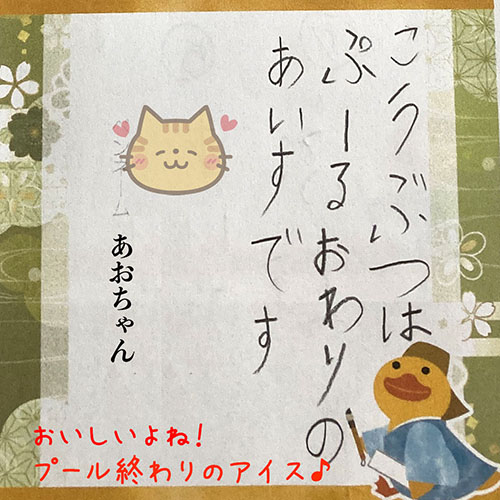 こうぶつは
ぷーるおわりの
あいすです
あおちゃん
おいしいよね!
プール終わりのアイス♪